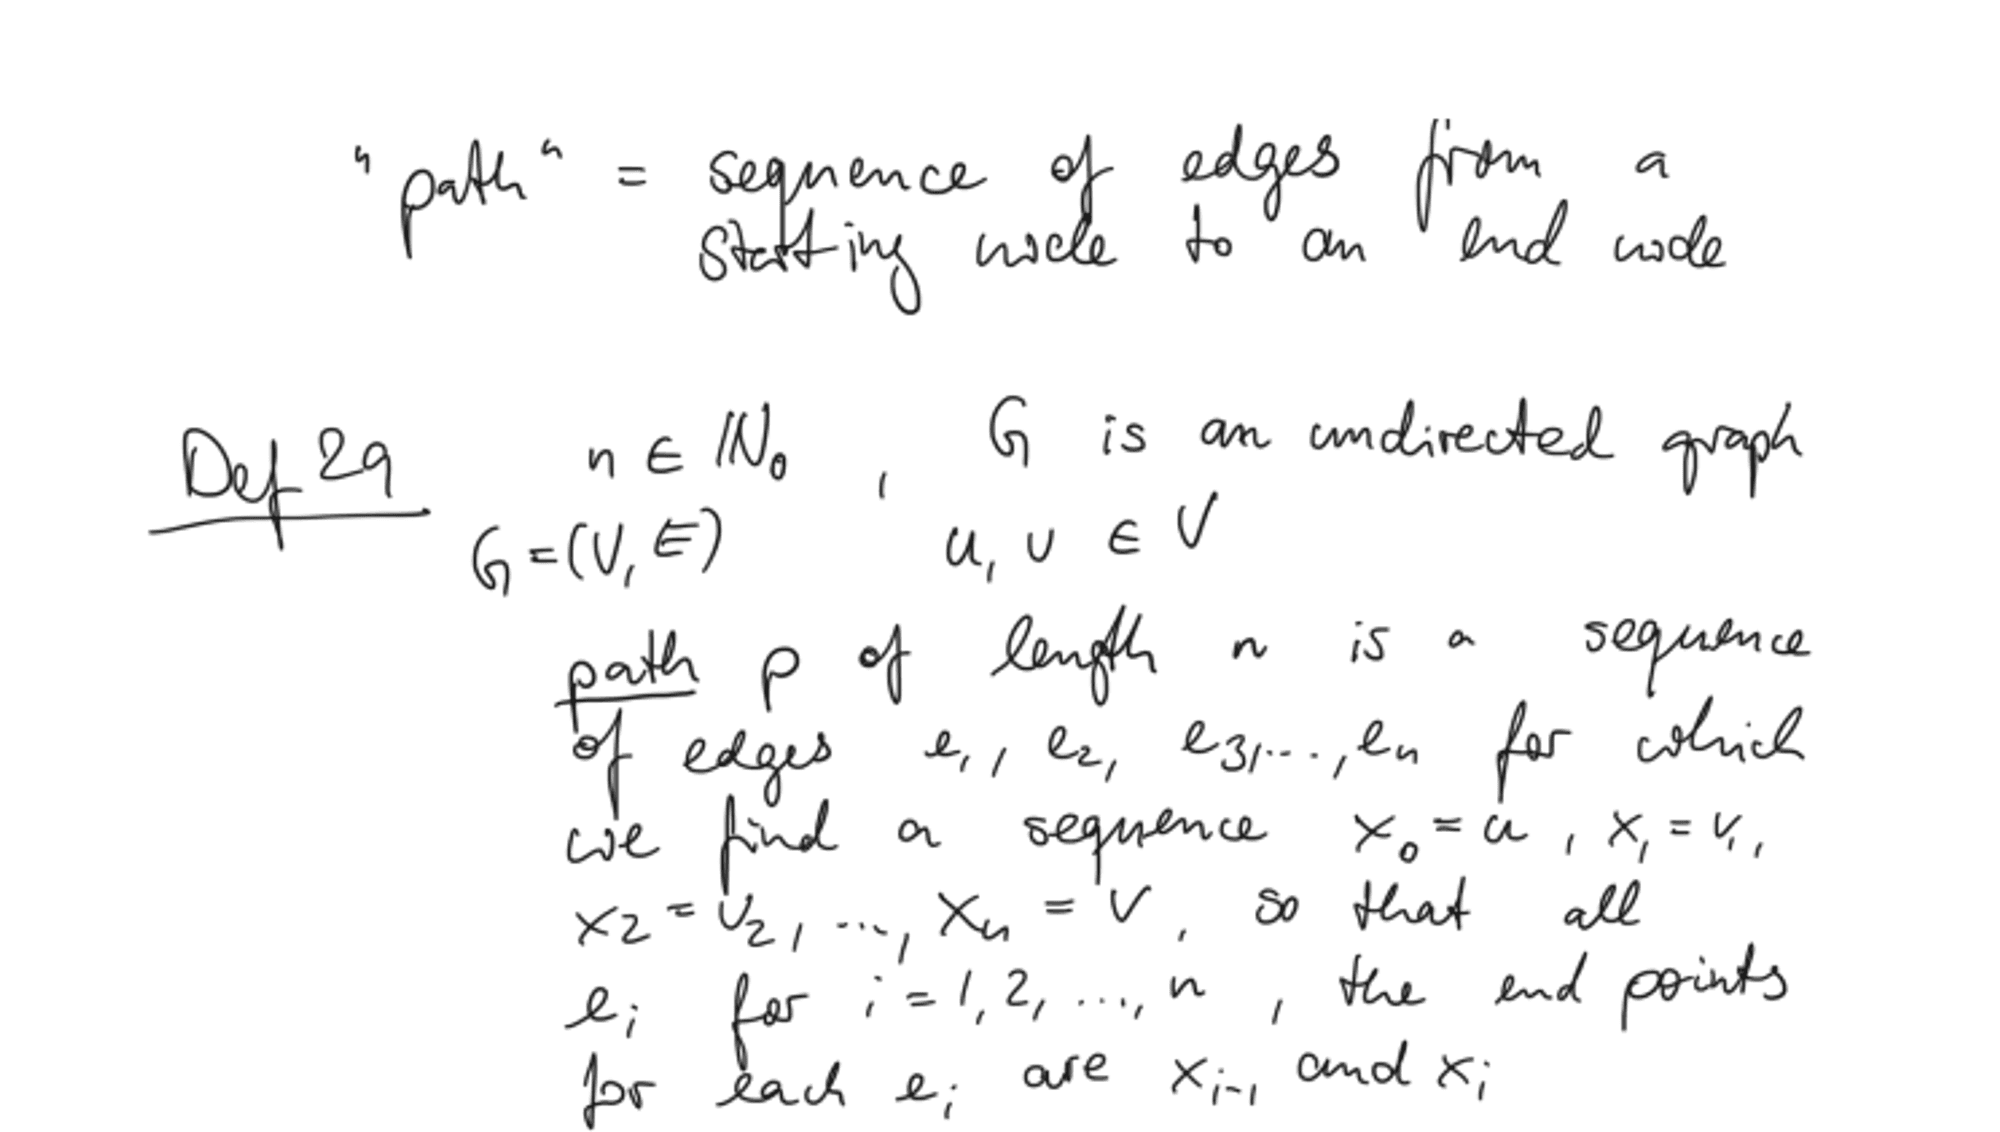 "path" = sequence of edges from a
starting node to an end node
Def 29 n ∈ ℕ₀ , G is an undirected graph
G = (V, E) u, v ∈ V
path p of length n is a sequence
of edges e₁, e₂, e₃, ..., eₙ for which
we find a sequence x₀ = u, x₁ = v₁,
x₂ = v₂, ..., xₙ = v, so that all
eᵢ for i = 1, 2, ..., n, the end points
for each eᵢ are xᵢ₋₁ and xᵢ